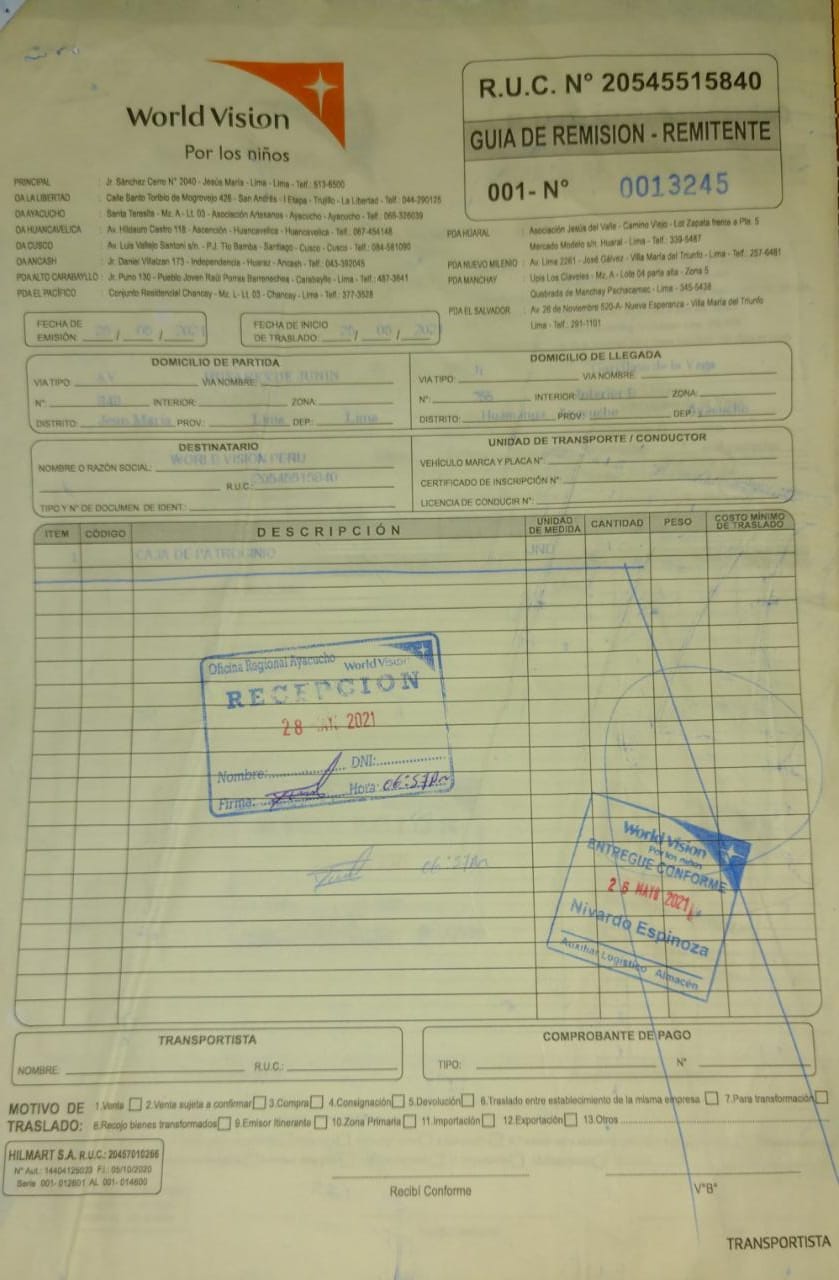 World Vision
Por los niños
R.U.C. N° 20545515840
GUIA DE REMISION - REMITENTE
001- N° 0013245
PRINCIPAL : Jr. Sánchez Cerro N° 2040 - Jesús María - Lima - Lima - Telf.: 613-6500
OA LA LIBERTAD : Calle Santo Toribio de Mogrovejo 426 - San Andrés - I Etapa - Trujillo - La Libertad - Telf: 044-290125
OA AYACUCHO : Santa Teresita - Mz. A - Lt. 03 - Asociación Artesanos - Ayacucho - Ayacucho - Telf.: 066-326039
OA HUANCAVELICA : Av. Hildauro Castro 118 - Ascención - Huancavelica - Huancavelica - Telf.: 067-454148
OA CUSCO : Av. Luis Vallejo Santoni s/n. - P.J. Tío Bamba - Santiago - Cusco - Cusco - Telf.: 084-581090
OA ANCASH : Jr. Daniel Villaizan 173 - Independencia - Huaraz - Ancash - Telf.: 043-392045
PDA ALTO CARABAYLLO : Jr. Puno 130 - Pueblo Joven Raúl Porras Barrenechea - Carabayllo - Lima - Telf.: 487-3641
PDA EL PACÍFICO : Conjunto Residencial Chancay - Mz. L- Lt. 03 - Chancay - Lima - Telf.: 377-3528
PDA HUARAL : Asociación Jesús del Valle - Camino Viejo - Lot Zapata frente a Pta. 5
Mercado Modelo s/n. Huaral - Lima - Telf.: 339-5487
PDA NUEVO MILENIO : Av. Lima 2261 - José Gálvez - Villa María del Triunfo - Lima - Telf.: 257-6481
PDA MANCHAY : Upis Los Claveles - Mz. A - Lote 04 parte alta - Zona 5
Quebrada de Manchay Pachacamac - Lima - 345-5438
PDA EL SALVADOR : Av. 26 de Noviembre 520-A- Nueva Esperanza - Villa María del Triunfo
Lima - Telf.: 291-1101
FECHA DE EMISIÓN: / 05 / 2021
FECHA DE INICIO DE TRASLADO: / 05 / 2021
DOMICILIO DE PARTIDA
VIA TIPO: AV VIA NOMBRE: DE JUNIN
N°: INTERIOR: ZONA:
DISTRITO: Jesus Maria PROV: Lima DEP: Lima
DOMICILIO DE LLEGADA
VIA TIPO: VIA NOMBRE: de la Vega
N°: INTERIOR: ZONA:
DISTRITO: Huamanga PROV: Ayacucho DEP: Ayacucho
DESTINATARIO
NOMBRE O RAZÓN SOCIAL: WORLD VISION PERU
R.U.C: 20545515840
TIPO Y N° DE DOCUMEN. DE IDENT.:
UNIDAD DE TRANSPORTE / CONDUCTOR
VEHÍCULO MARCA Y PLACA N°:
CERTIFICADO DE INSCRIPCIÓN N°:
LICENCIA DE CONDUCIR N°:
ITEM CÓDIGO DESCRIPCIÓN UNIDAD DE MEDIDA CANTIDAD PESO COSTO MÍNIMO DE TRASLADO
1 CAJA DE PATROCINIO UND 1
Oficina Regional Ayacucho World Vision
RECEPCION
28 2021
Nombre: DNI:
Firma: Hora: 06:57Pm
06:57Pm
World Vision
Por los niños
ENTREGUE CONFORME
26 MAYO 2021
Nivardo Espinoza
Auxiliar Logístico Almacén
TRANSPORTISTA
NOMBRE: R.U.C.:
COMPROBANTE DE PAGO
TIPO: N°
MOTIVO DE TRASLADO: 1.Venta 2.Venta sujeta a confirmar 3.Compra 4.Consignación 5.Devolución 6.Traslado entre establecimiento de la misma empresa 7.Para transformación
8.Recojo bienes transformados 9.Emisor Itinerante 10.Zona Primaria 11.Importación 12.Exportación 13.Otros
HILMART S.A. R.U.C.: 20457010266
N° Aut.: 14404125033 F.I.: 05/10/2020
Serie 001- 012601 AL 001- 014600
Recibí Conforme
V°B°
TRANSPORTISTA